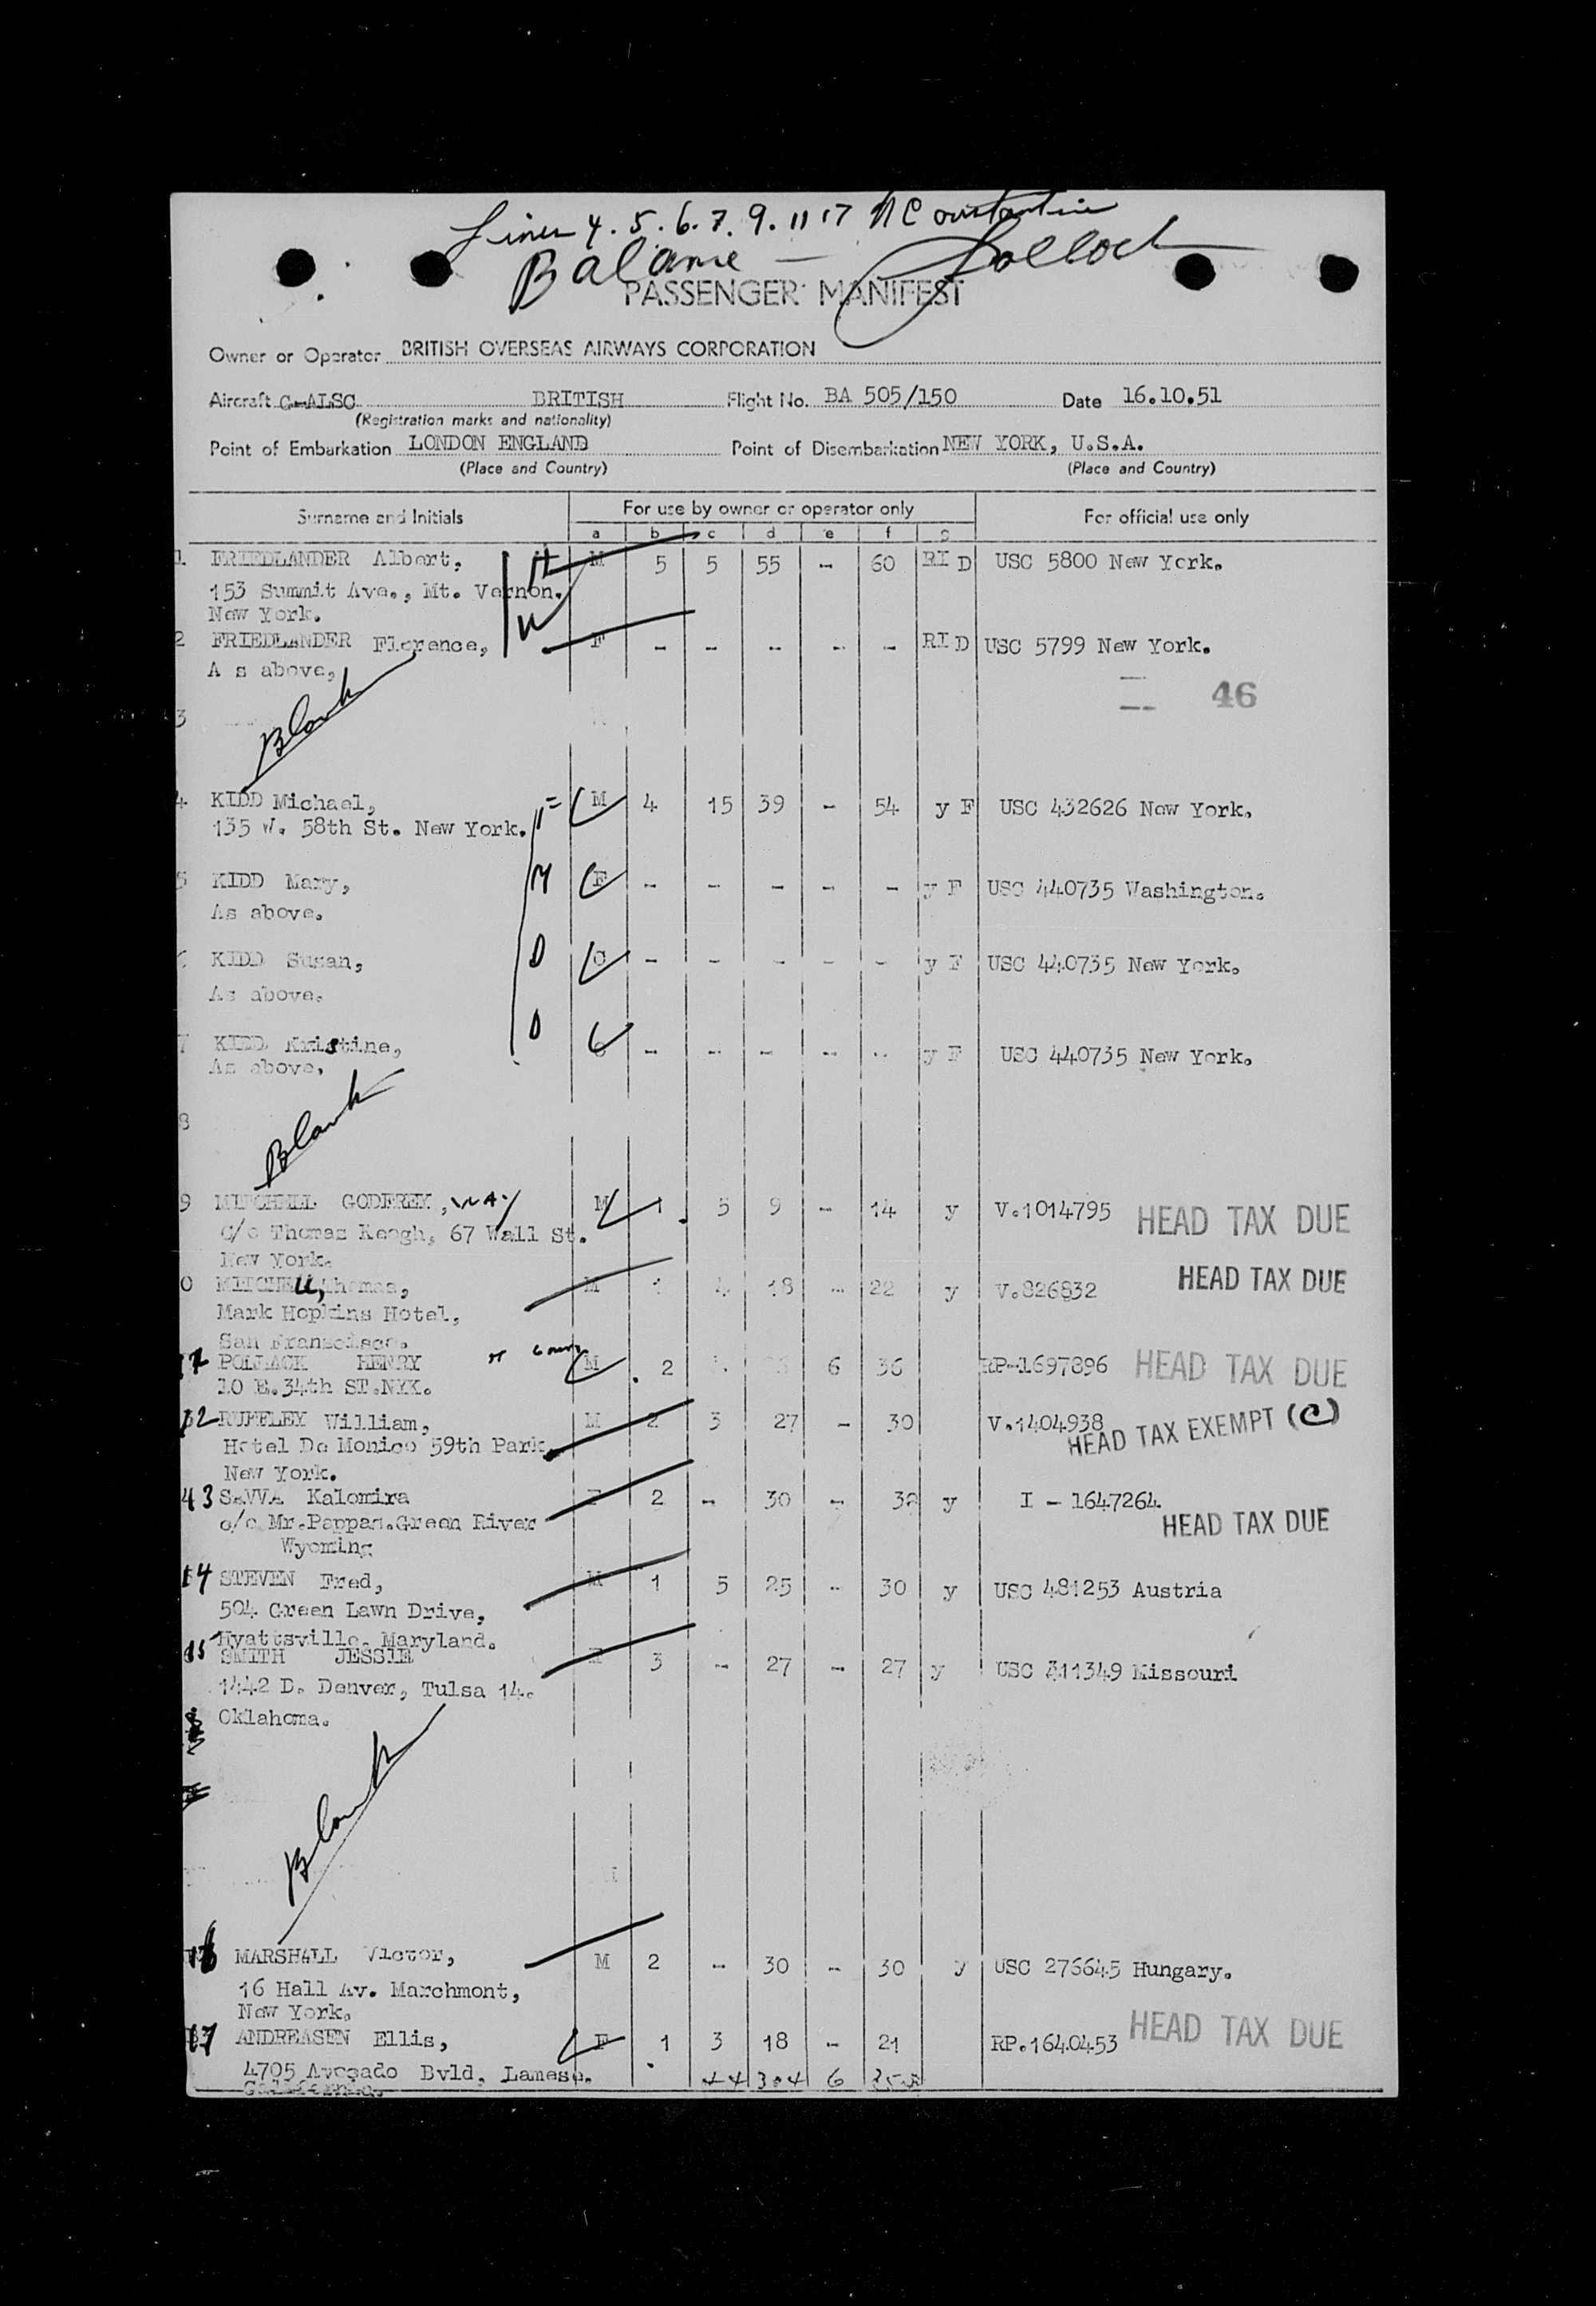 Lines 4. 5. 6. 7. 9. 11 17 N Constantine
Balance —
PASSENGER MANIFEST
Owner or Operator BRITISH OVERSEAS AIRWAYS CORPORATION
Aircraft G-ALSC BRITISH Flight No. BA 505/150 Date 16.10.51
(Registration marks and nationality)
Point of Embarkation LONDON ENGLAND Point of Disembarkation NEW YORK, U.S.A.
(Place and Country) (Place and Country)
Surname and Initials For use by owner or operator only For official use only
a b c d e f g
1 FRIEDLANDER Albert, H M 5 5 55 - 60 RI D USC 5800 New York.
153 Summit Ave., Mt. Vernon.
New York. W
2 FRIEDLANDER Florence, F - - - - - RI D USC 5799 New York.
A s above,
46
3 Blank
4 KIDD Michael, M 4 15 39 - 54 y F USC 432626 New York.
135 W. 58th St. New York.
5 KIDD Mary, M F - - - - - y F USC 440735 Washington.
As above.
6 KIDD Susan, D C - - - - - y F USC 440735 New York.
As above.
7 KIDD Kristine, D C - - - - - y F USC 440735 New York.
As above.
8 Blank
9 MITCHELL GODFREY, WAY M 1 5 9 - 14 y V.1014795 HEAD TAX DUE
C/o Thomas Keogh, 67 Wall St.
New York.
0 MITCHELL, Thomas, M 1 4 18 - 22 y V.826832 HEAD TAX DUE
Mark Hopkins Hotel,
San Franscisco.
POLLACK HENRY M 2 6 36 RP-1697896 HEAD TAX DUE
10 E.34th ST.NYK.
12 RUFFLEY William, M 2 3 27 - 30 V.1404938
HEAD TAX EXEMPT (C)
Hotel De Monico 59th Park
New York.
43 SAVVA Kalomira F 2 - 30 - 30 y I - 1647264
HEAD TAX DUE
c/o Mr.Pappas.Green River
Wyoming
14 STEVEN Fred, M 1 5 25 - 30 y USC 481253 Austria
504 Green Lawn Drive,
Hyattsville. Maryland.
15 SMITH JESSIE F 3 - 27 - 27 y USC 311349 Missouri
1442 D. Denver, Tulsa 14.
Oklahoma.
Blank
16 MARSHALL Victor, M 2 - 30 - 30 y USC 276645 Hungary.
16 Hall Av. Marchmont,
New York.
17 ANDREASEN Ellis, F 1 3 18 - 21 RP.1640453 HEAD TAX DUE
4705 Avocado Bvld. Lamesa.
California. 44 304 6